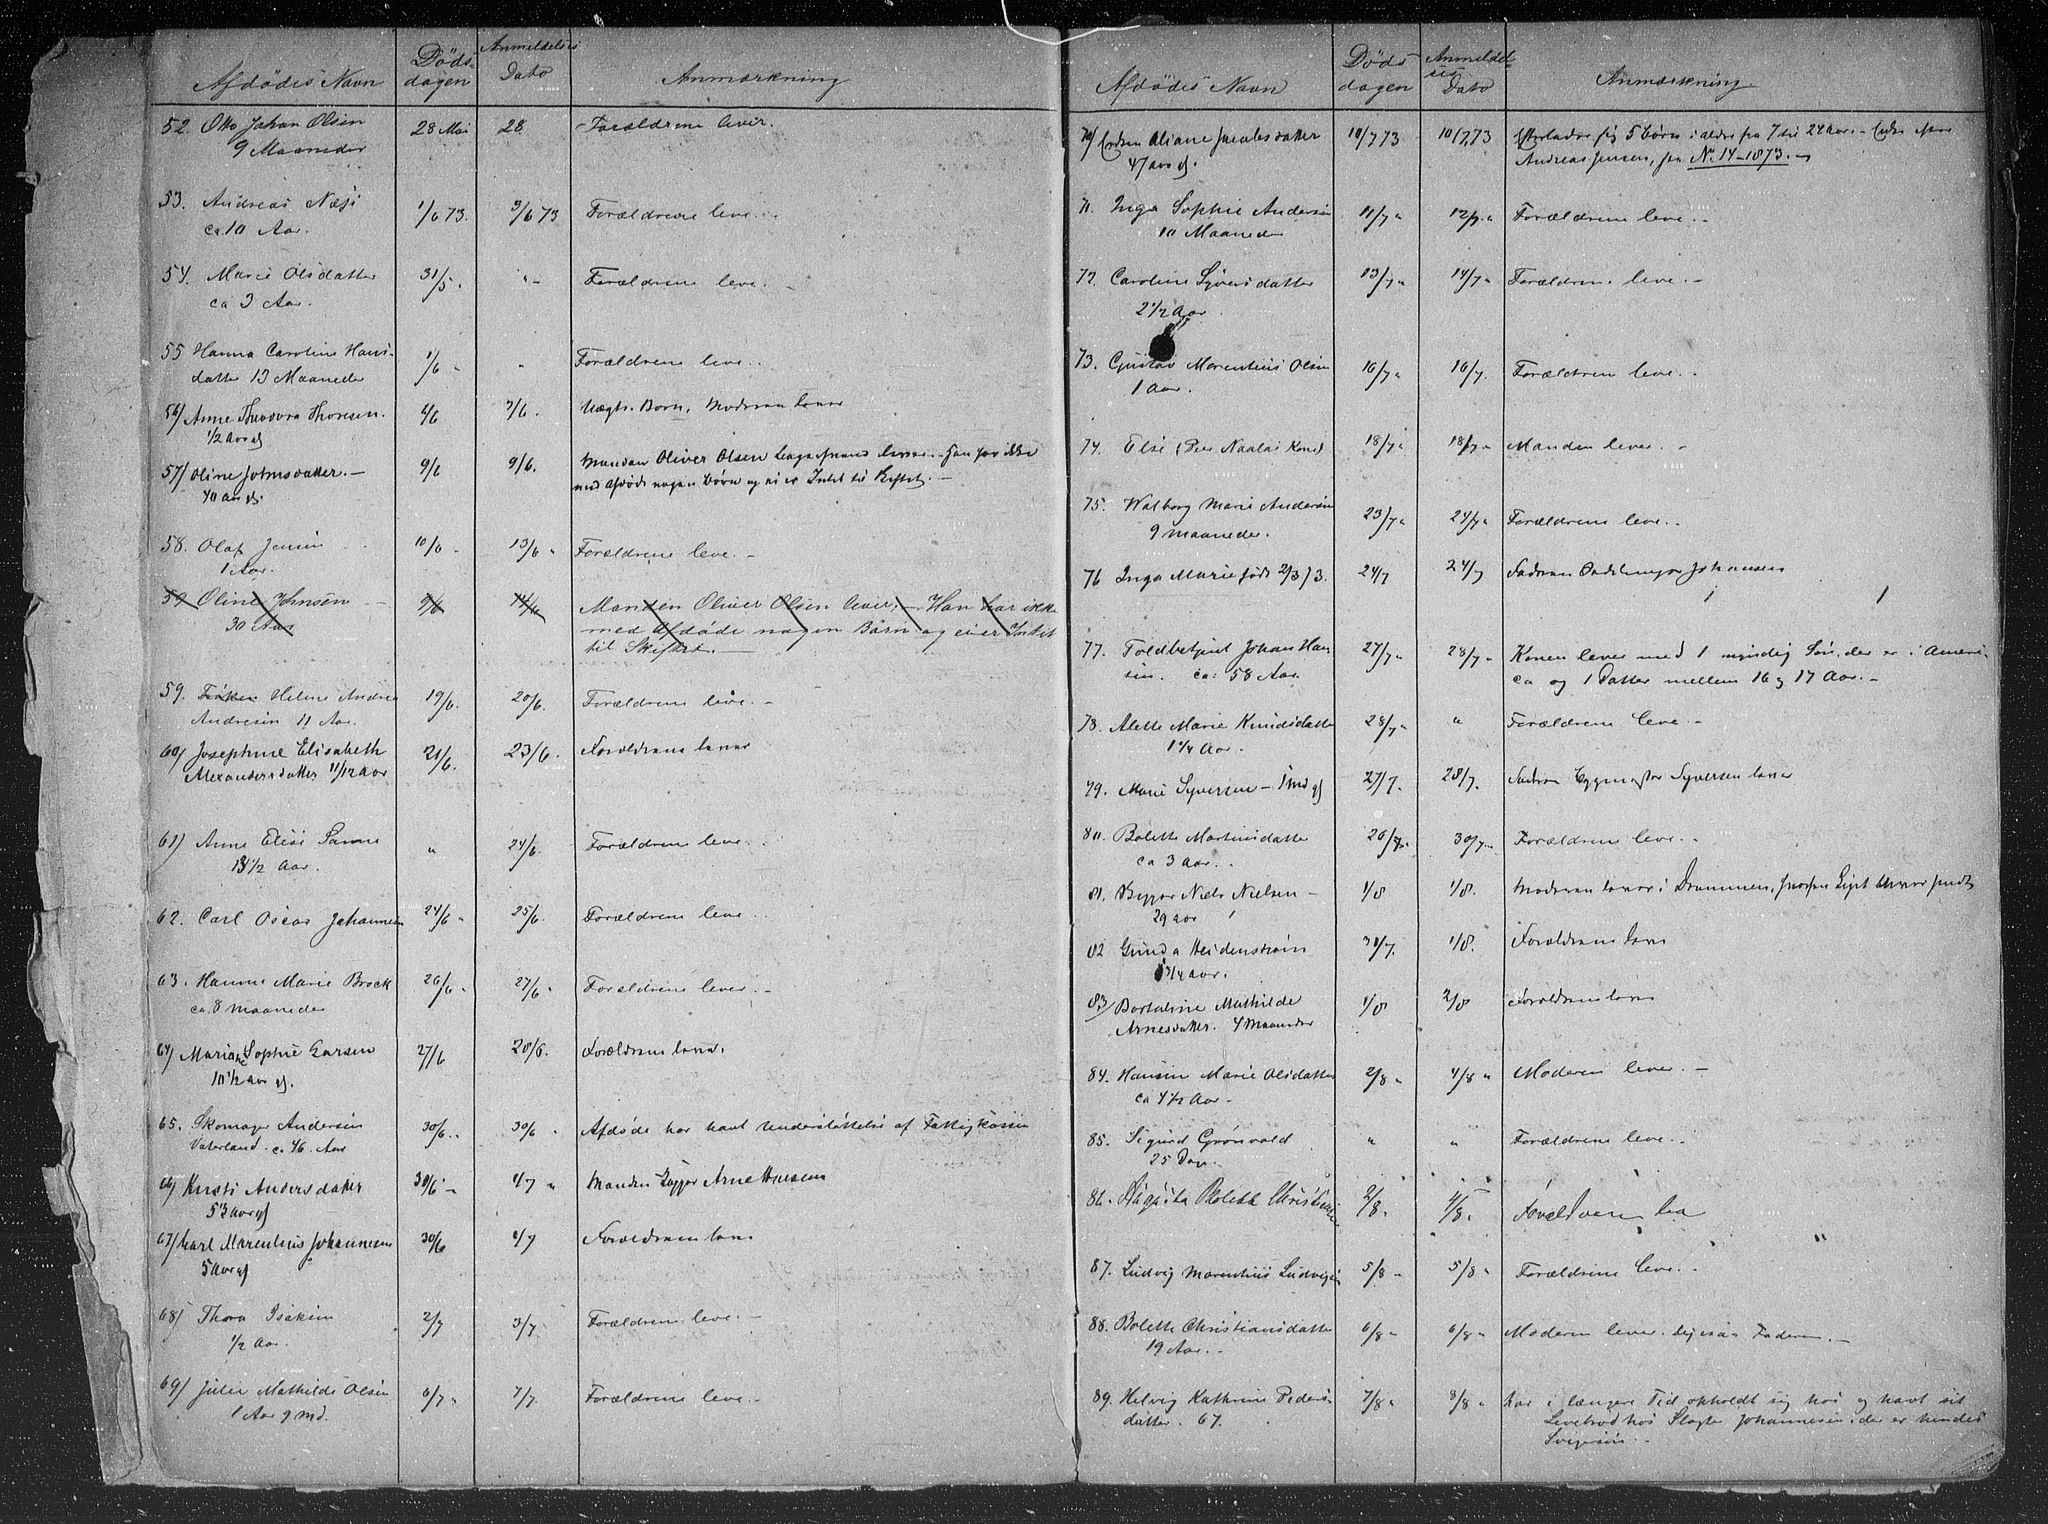 Afdødes Navn Døds- dagen Anmeldelses Dato Anmærkning
52. Otto Johan Olsen 28 Mai 28 Forældrene lever.
9 Maaneder
53. Andreas Næss 1/6 73. 3/6 73 Forældrene leve.
ca. 10 Aar.
54. Marie Olsdatter 31/5 " " – Forældrene leve. –
ca 3 Aar.
55 Hanna Caroline Hans- 1/6 " " Forældrene leve.
datter 13 Maaneder
56/ Anne Theodora Thoresen. 2/6 3/6. Uægte Barn, Moderen lever
1/2 Aar gl
57/ Oline Johnsdatter. – 9/6 9/6. Manden Oliver Olsen lever. – Han har ikke
40 Aar gl. med Afdøde nogen Børn og ei er Intet til Skiftet. –
58. Olaf Jensen 10/6 – 13/6 " Forældrene leve. –
1 Aar.
59. Oline Johnsen – 9/6 Manden Oliver Olsen lever. – Han har ikke
30 Aar med Afdøde nogen Børn og eier Intet
til Skiftet. –
59. Frøken Helene Andrea 19/6. 20/6. Forældrene leve. –
Andresen 11 Aar.
60/ Josephine Elisabeth 21/6. 23/6. Forældrene lever
Alexandersdatter 11/12 Aar
61) Anne Elise Sanne " 24/6. Forældrene leve.
1 1/2 Aar.
62. Carl Oscar Johannesen 24/6 " 25/6 Forældrene leve.
63. Hanne Marie Brock 26/6 " 27/6 " Forældrene lever. –
ca. 8 Maaneder
64/ Mariane Sophie Larsen 27/6 28/6. Forældrene lever.
10 1/2 Aar gl.
65. Skomager Andersen 30/6 .. 30/6 " Afdøde har havt Understøttelse af Fattigkassen
Vaterland. ca. 46. Aar
66/ Kirsti Andersdatter 30/6 – 1/7 " Manden Arne Hansen
53 Aar gl
67/ Carl Marentius Johannesen 30/6 1/7 Forældrene lever
5 Aar gl
68) Thora Isaksen 2/7 3/7. Forældrene leve. –
1/2 Aar.
69) Julie Mathilde Olsen 6/7 " 7/7. Forældrene leve. –
1 Aar 9 Md.
Afdødes Navn Døds dagen Anmeldel- ses Dato Anmærkning
70/ Oliane Jacobsdatter 10/7 73 10/7 73 Efterlader sig 5 Børn i alder fra 7 til 24 Aar. – Enke efter
47 Aar gl. Andreas Jensen, fra No. 14 – 1873. –
71. Inga Sophie Andersen 11/7 " 12/7 " Forældrene leve. –
10 Maaneder
72. Caroline Syversdatter 13/7 " 14/7 " Forældrene leve. –
2 1/2 Aar.
73. Gustav Marentius Olsen 16/7 " 16/7. Forældrene leve. –
1 Aar.
74. Else (Peer Kone) 18/7 " 18/7 " Manden lever. –
75. Walborg Marie Andersen 23/7 " 24/7 " Forældrene leve. –
9 Maaneder.
76 Inga Marie født 2/3 73. 24/7 24/7 Faderen Johansen
77. Toldbetjent Johan Han- 27/7 " 28/7 " Konen lever med 1 myndig Søn, der er i Ameri-
sen. ca: 58 Aar. ca og 1 Datter mellem 16 og 17 Aar. –
78. Alette Marie Knudsdatter 28/7 " " Forældrene leve –
1 1/4 Aar.
79. Marie Syversen – 1 Md gl 27/7. 28/7. Faderen Syversen lever
80. Bolette Martinsdatter 26/7 30/7 .. Forældrene leve. –
ca 3 Aar.
81. Bygger Niels Nielsen – 1/8 1/8. Moderen lever i Drammen,
29 Aar
82 Gunda Heidenstrøm 31/7. 1/8. Forældrene lever
3/4 Aar.
83/ Bortaline Mathilde 1/8 2/8 Forældrene lever
Arnesdatter. 4 Maaneder
84. Hansin Marie Olsdatter 2/8 " 4/8 " Moderen lever. –
ca 4 1/2 Aar –
85. Sigurd Grønvold " " Forældrene leve. –
25 Dage.
86. Bolette Christensen 2/8 " 4/8. Forældrene leve
87. Ludvig Marentius Ludvigsen 5/8 – 5/8 " Forældrene leve. –
88. Bolette Christiansdatter 6/8 " 6/8 " Moderen lever. ligesaa Faderen. –
19 Aar. –
89. Helvig Kathrine Peders- 7/8 " 8/8 " har i længere Tid opholdt sig hos og havt sit
datter. 67. Levebrød hos Slagter Johannesen, der er hendes
Svigersøn. –